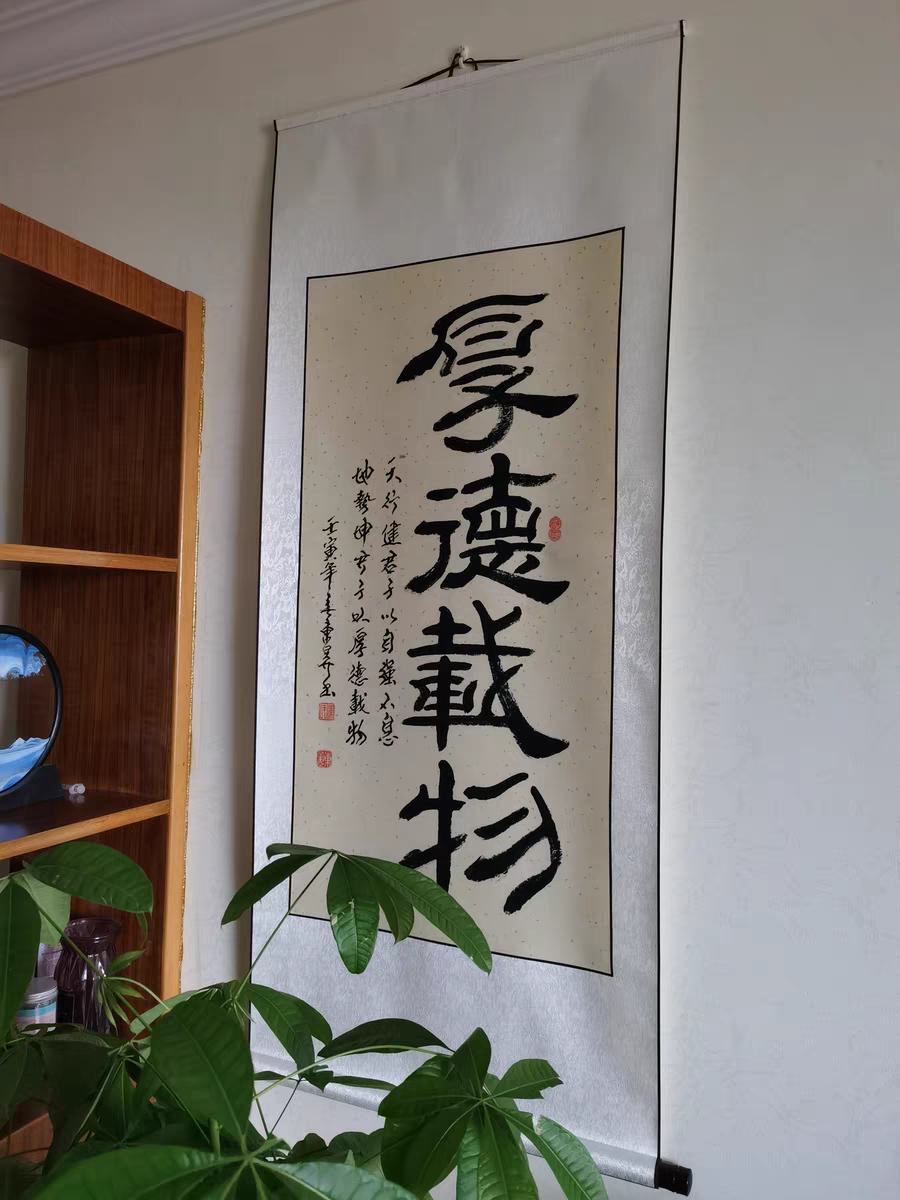 厚德載物
天行健君子以自強不息
地勢坤君子以厚德載物
壬寅年